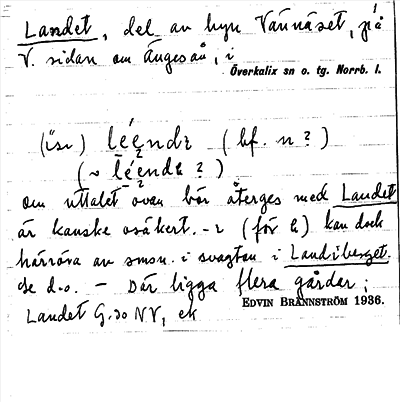 Landet, del av byn Vännäset, på
V. sidan om Ängesån, i
Överkalix sn o. tg. Norrb. l.
(isv) léendɩ (bf. n?)
(~ léendɛ ?)
om uttalet ovan bör återges med Landet
är kanske osäkert. -ɩ (för ɛ) kan dock
härröra av smsn. i svagton i Landiberget.
se d.o. — Där ligga flera gårdar;
EDVIN BRÄNNSTRÖM 1936.
Landet G.30 NV, ek